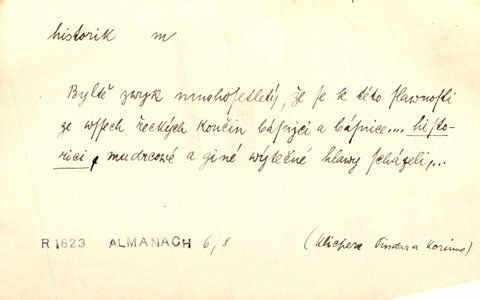 historik m
Byltě zwyk mnohosetletý, že se k této slawnosti
ze wssech řeckých končin básnjci a básnice.... histo-
rici, mudrcowé a giné wýtečné hlawy scházeli,...
R 1823 ALMANACH 6, 8 (Klicpera Pindar a Korinna)